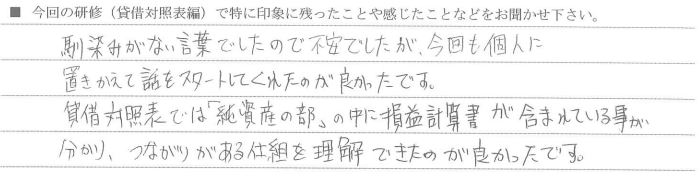 ■ 今回の研修（貸借対照表編）で特に印象に残ったことや感じたことなどをお聞かせ下さい。
馴染みがない言葉でしたので不安でしたが、今回も個人に
置きかえて話をスタートしてくれたのが良かったです。
貸借対照表では「純資産の部」の中に損益計算書が含まれている事が
分かり、つながりがある仕組を理解できたのが良かったです。